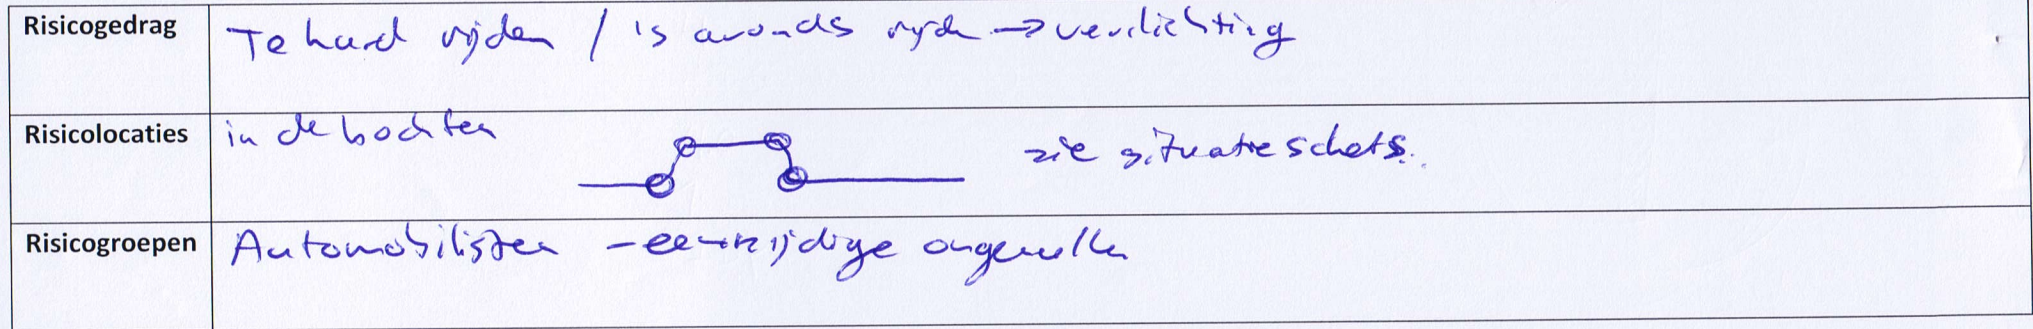 Risicogedrag Te hard rijden / 's avonds rijden → verlichting
Risicolocaties in de bochten zie situatieschets.
Risicogroepen Automobilisten - eenzijdige ongevallen